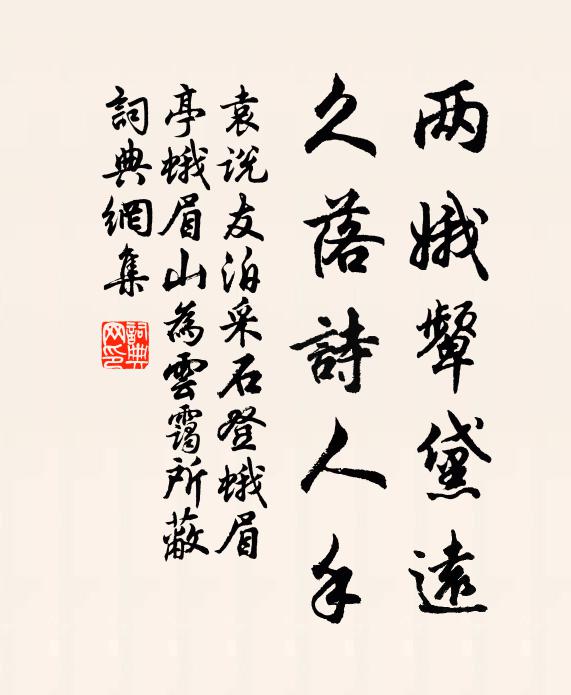 两娥颦黛遠
久落詩人手
袁说友泊采石登蛾眉
亭蛾眉山為雲靄所蔽
詞典網集
詞典网印